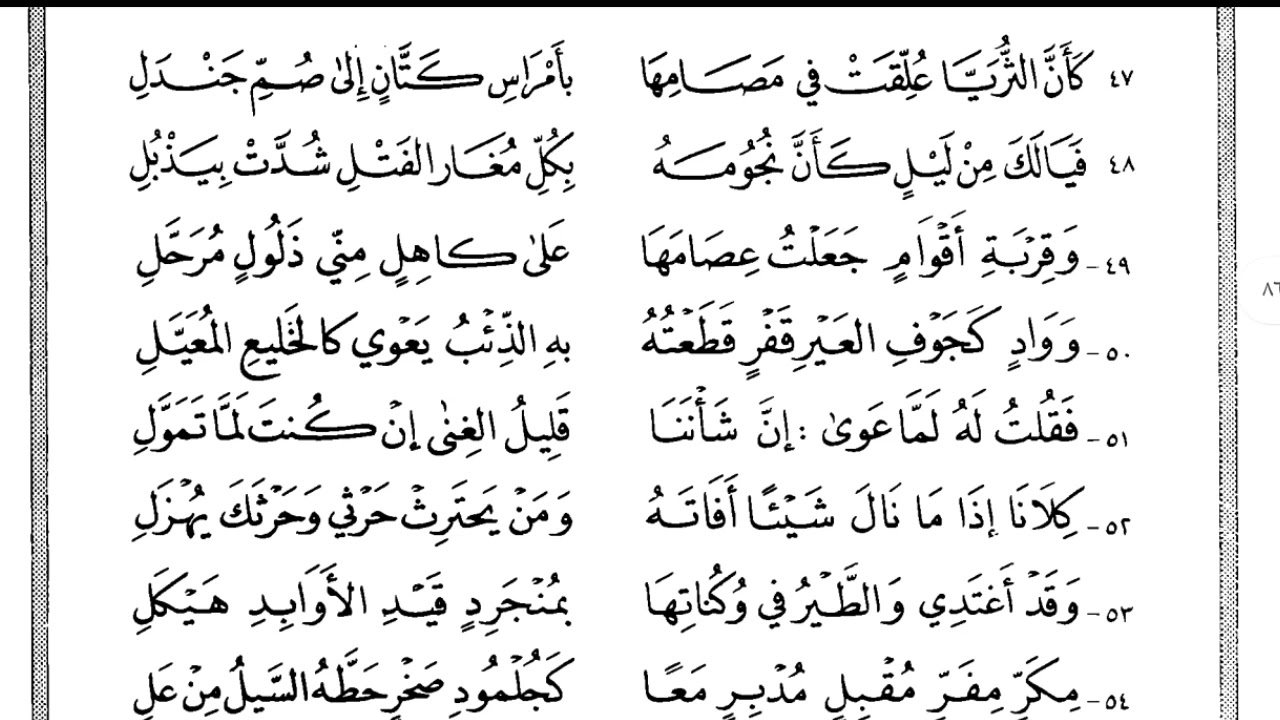 ٤٧ كَأَنَّ الثُّرَيَّا عُلِّقَتْ في مَصَامِهَا بأَمْرَاسِ كَتَّانٍ إِلىٰ صُمِّ جَنْدَلِ
٤٨ فَيَا لَكَ مِنْ لَيْلٍ كَأَنَّ نُجُومَهُ بِكُلِّ مُغَارِ الفَتْلِ شُدَّتْ بِيَذْبُلِ
٤٩- وَقِرْبَةِ أَقْوَامٍ جَعَلْتُ عِصَامَهَا عَلىٰ كاهِلٍ مِنِّي ذَلُولٍ مُرَحَّلِ
٥٠- وَوَادٍ كَجَوْفِ العَيْرِ قَفْرٍ قَطَعْتُهُ بهِ الذِّئْبُ يَعْوِي كالخَلِيعِ المُعَيَّلِ
٥١- فَقُلتُ لَهُ لَمَّا عَوىٰ : إنَّ شَأْنَنَا قَلِيلُ الغِنىٰ إنْ كُنتَ لَمَّا تَمَوَّلِ
٥٢- كِلَانَا إذَا مَا نَالَ شَيْئًا أَفَاتَهُ وَمَنْ يَحتَرِثْ حَرْثي وَحَرْثَكَ يُهْزَلِ
٥٣- وَقَدْ أَغتَدِي وَالطَّيْرُ في وُكُناتِهَا بمُنْجَرِدٍ قَيْدِ الأَوَابِدِ هَيْكَلِ
٥٤- مِكَرٍّ مِفَرٍّ مُقْبِلٍ مُدْبِرٍ مَعًا كَجُلْمُودِ صَخْرٍ حَطَّهُ السَّيلُ مِنْ عَلِ
٨٦